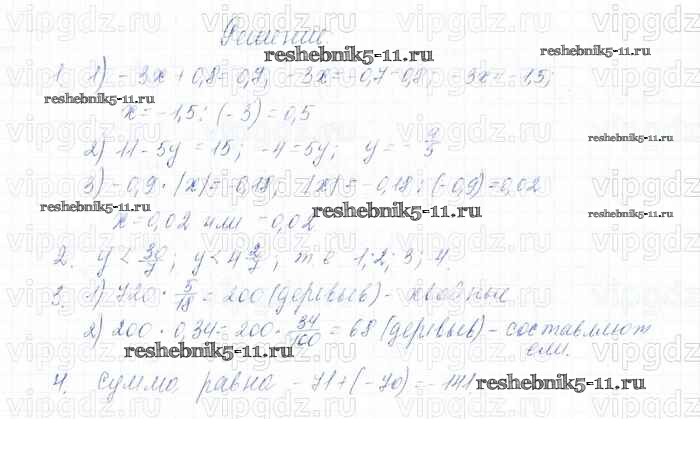 Решение
1. 1) -3x + 0,8 = -0,7; -3x = -0,7 - 0,8; -3x = -1,5;
x = -1,5 : (-3) = 0,5
2) 11 - 5y = 15; -4 = 5y; y = -4/5
3) -0,9 · |x| = -0,18; |x| = -0,18 : (-0,9) = 0,02
x = 0,02 или -0,02
2. y < 30/7; y < 4 2/7; т.е 1; 2; 3; 4.
3. 1) 720 · 5/18 = 200 (деревьев) - хвойные
2) 200 · 0,34 = 200 · 34/100 = 68 (деревьев) - составляют
ели.
4. Сумма равна -71 + (-70) = -141
reshebnik5-11.ru
reshebnik5-11.ru
reshebnik5-11.ru
reshebnik5-11.ru
reshebnik5-11.ru
reshebnik5-11.ru
reshebnik5-11.ru
reshebnik5-11.ru
reshebnik5-11.ru
vipgdz.ru